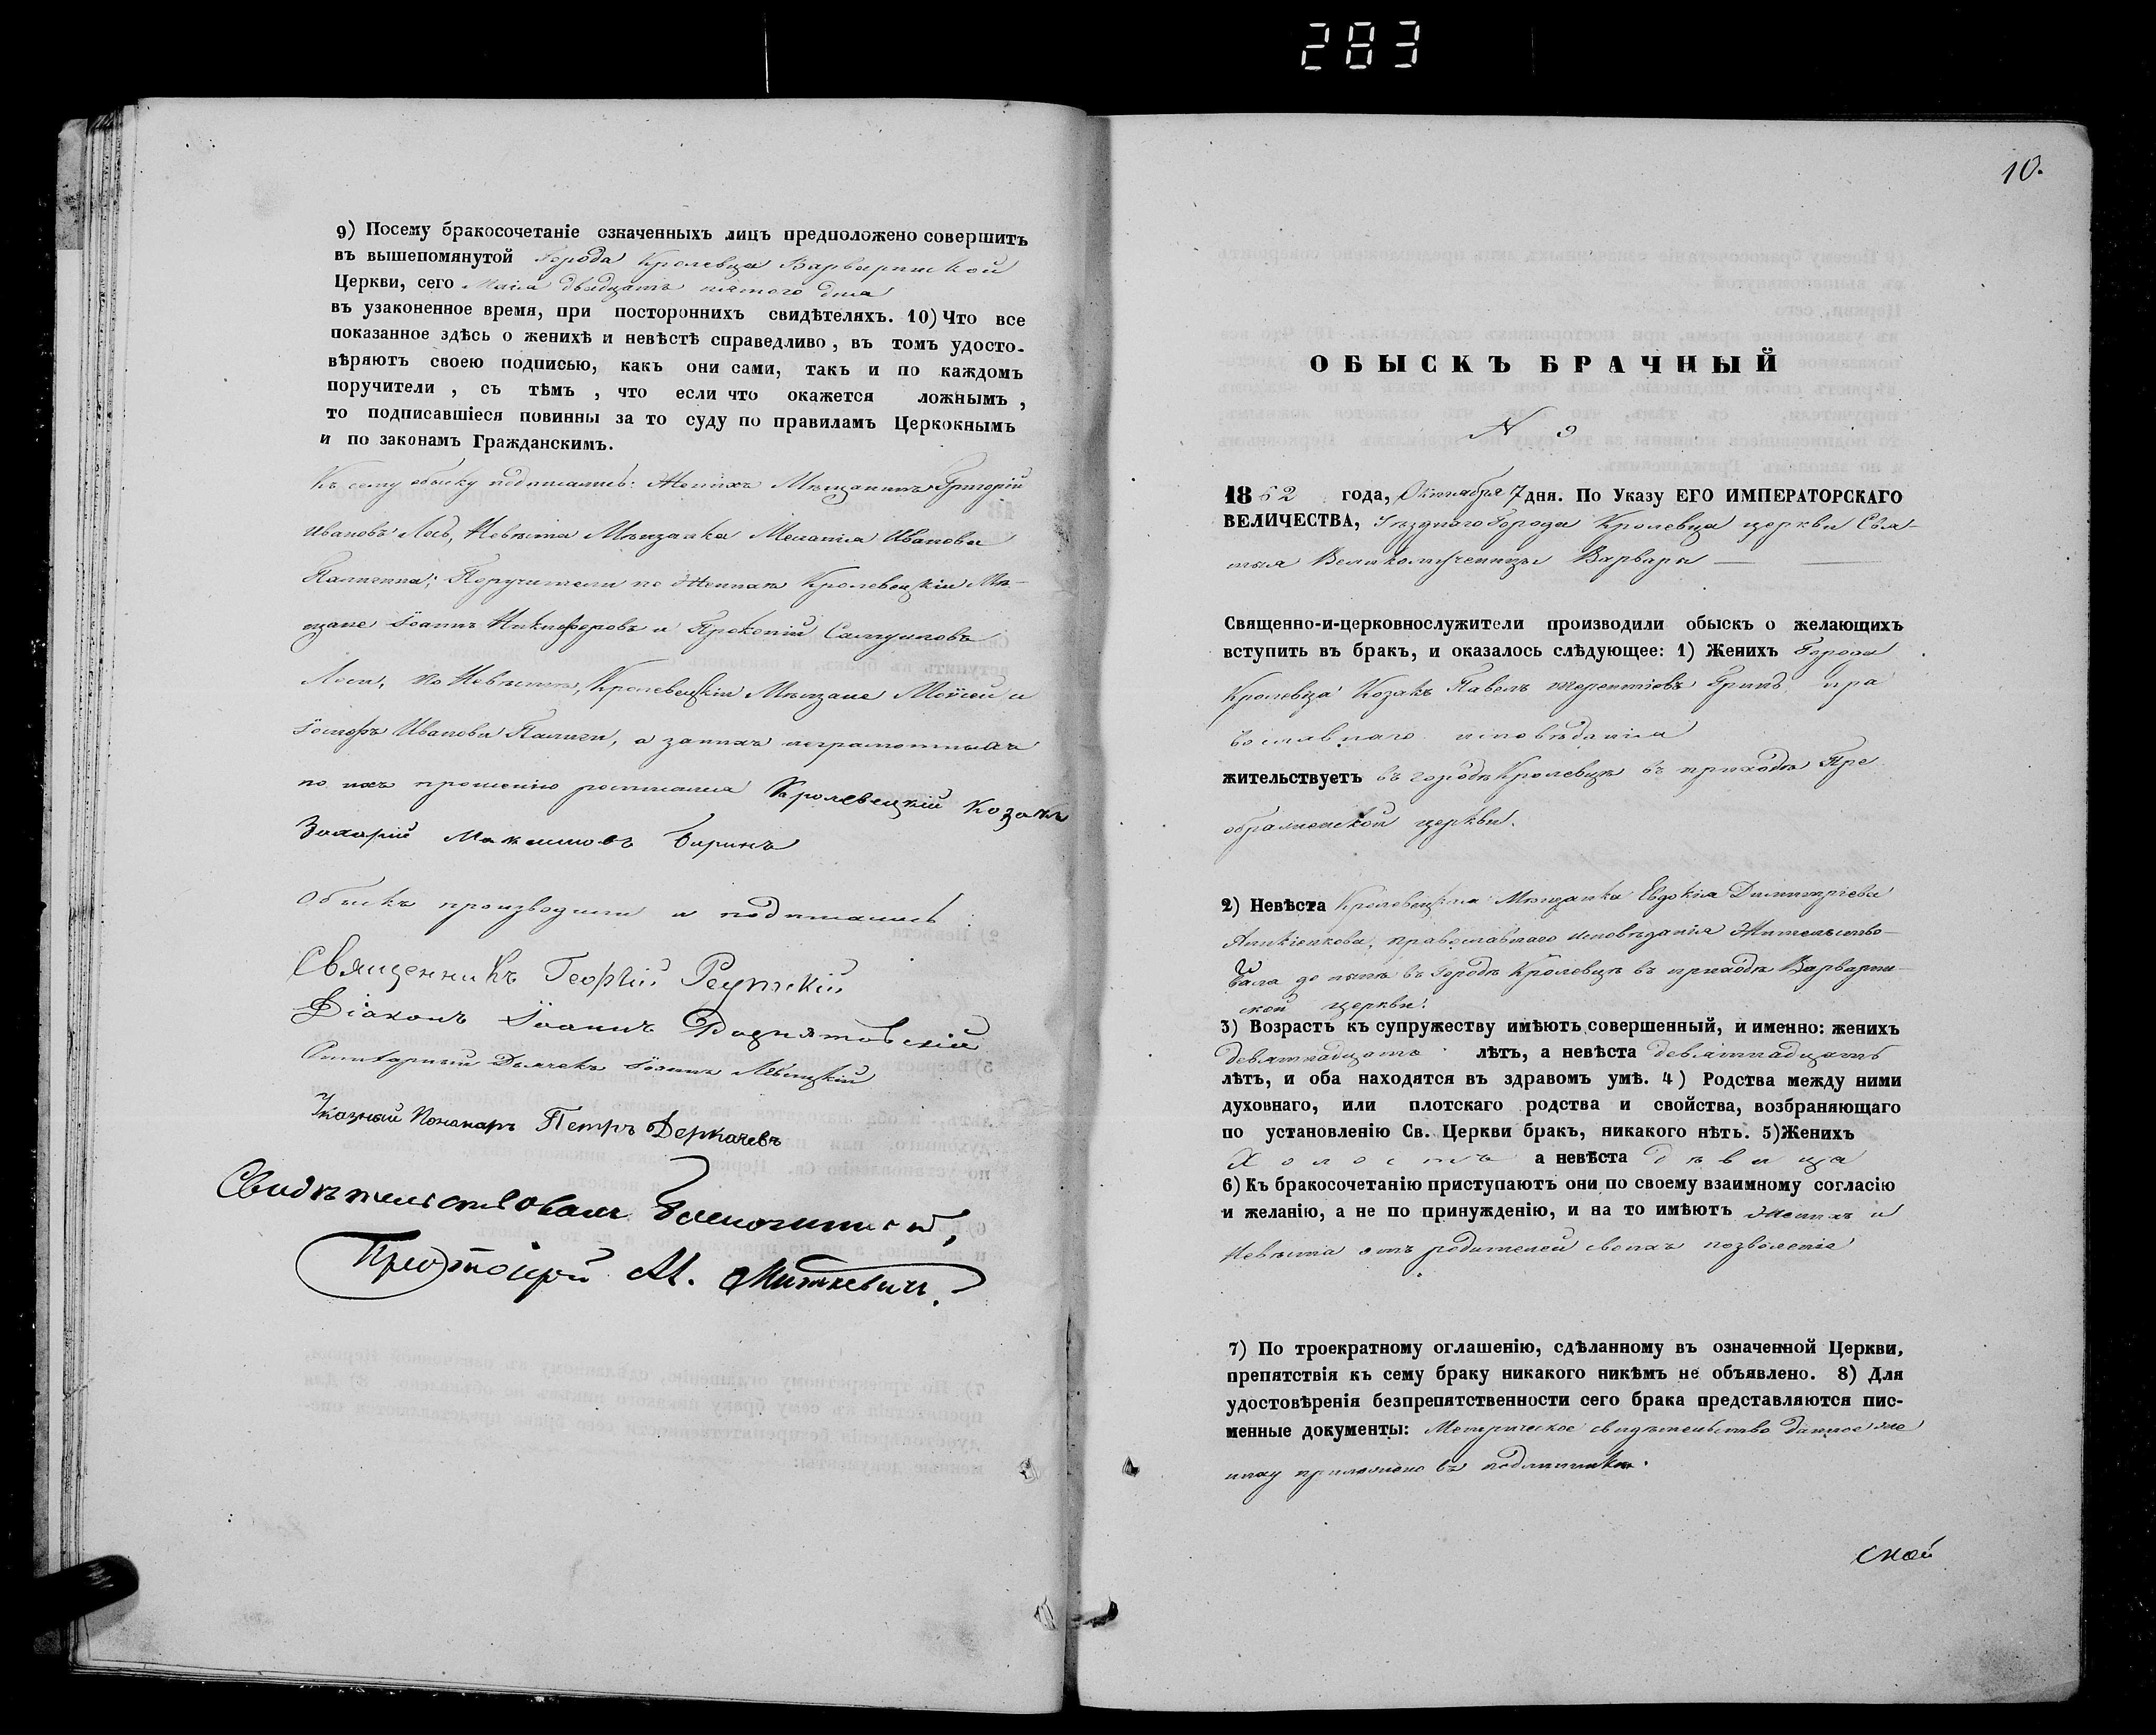 283
9) Посему бракосочетаніе означенныхъ лицъ предположено совершить
въ вышепомянутой Города Кролевца Варваринской
Церкви, сего Маія двадцать пятого дня
въ узаконенное время, при постороннихъ свидѣтеляхъ. 10) Что все
показанное здѣсь о женихѣ и невѣстѣ справедливо, въ томъ удосто-
вѣряютъ своею подписью, какъ они сами, такъ и по каждомъ
поручители, съ тѣмъ, что если что окажется ложнымъ,
то подписавшіеся повинны за то суду по правиламъ Церкокнымъ
и по законамъ Гражданскимъ.
Къ сему обыску подписались: Женихъ Мѣщанинъ Григорій
Ивановъ Невѣста Мѣщанка Меланія Иванова
Поручители по Женихѣ Кролевецкіи Мѣ-
щане Іоаннъ Никифоровъ и Прокопій Самуиловъ
по Невѣстѣ, Кролевецкіи Мѣщане Моисей и
Іосифъ Ивановы а за нихъ неграмотныхъ
по ихъ прошенію росписался Кролевецкій Козакъ
Захарій Максимовъ Биринъ
Обыскъ производили и подписались:
Священникъ Георгій Реутскій
Діаконъ Іоаннъ
Дьячекъ Іоаннъ Левицкій
Указный Пономарь Петръ Деркачевъ
Свидѣтельствовалъ Благочинный,
Протоіерей Ал. Миткевичъ.
10.
ОБЫСКЪ БРАЧНЫЙ
N 9
1862 года, Октября 7 дня. По Указу ЕГО ИМПЕРАТОРСКАГО
ВЕЛИЧЕСТВА, Уѣзднаго Города Кролевца церкви Свя-
тыя Великомученицы Варвары
Священно-и-церковнослужители производили обыскъ о желающихъ
вступить въ бракъ, и оказалось слѣдующее: 1) Женихъ Города
Кролевца Козакъ Павелъ Терентіевъ пра
вославнаго исповѣданія
жительствуетъ въ городѣ Кролевцѣ въ приходѣ Пре
ображенской церкви.
2) Невѣста Кролевецкая Мѣщанка Евдокія Димитріева
православнаго исповѣданія Жительство-
вала до нынѣ въ Городѣ Кролевцѣ въ приходѣ Варварин-
ской церкви.
3) Возрастъ къ супружеству имѣютъ совершенный, и именно: женихъ
девятнадцать лѣтъ, а невѣста девятнадцать
лѣтъ, и оба находятся въ здравомъ умѣ. 4) Родства между ними
духовнаго, или плотскаго родства и свойства, возбраняющаго
по установленію Св. Церкви бракъ, никакого нѣтъ. 5) Женихъ
Холостъ а невѣста дѣвица
6) Къ бракосочетанію приступаютъ они по своему взаимному согласію
и желанію, а не по принужденію, и на то имѣютъ Женихъ и
Невѣста отъ родителей своихъ позволеніе
7) По троекратному оглашенію, сдѣланному въ означенной Церкви,
препятствія къ сему браку никакого никѣмъ не объявлено. 8) Для
удостовѣренія безпрепятственности сего брака представляются пис-
менные документы: Метрическое свидѣтельство данное Же
ниху приложено въ подлинникѣ.
ской